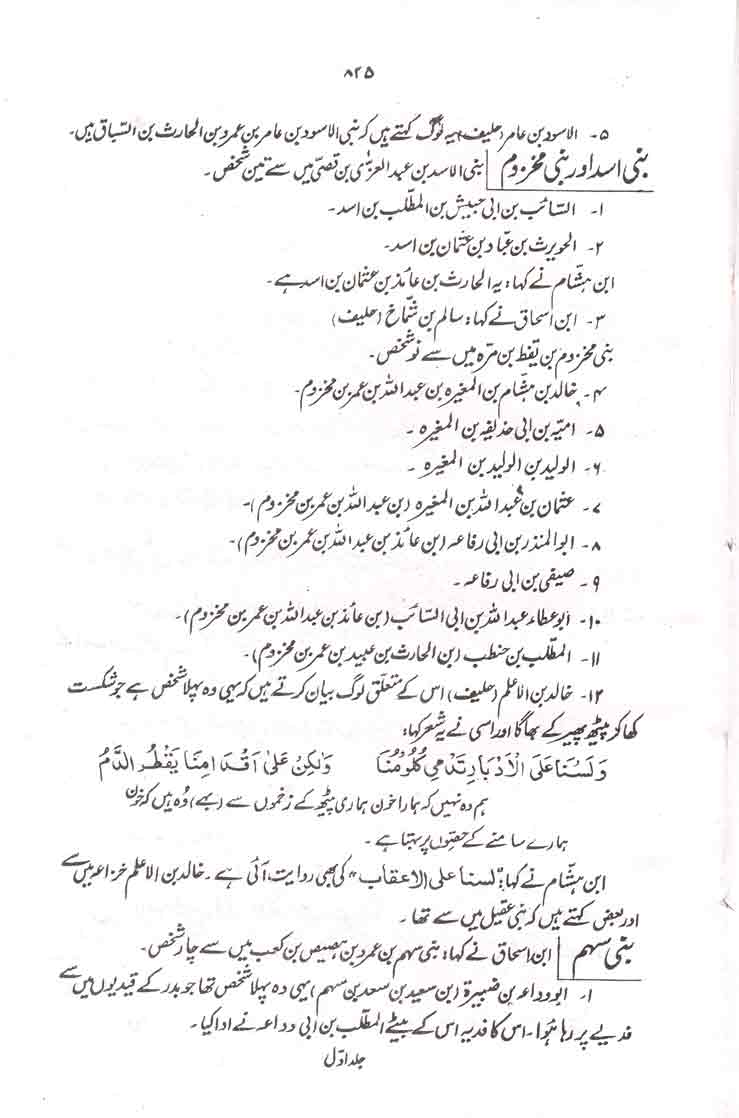 ۸۲۵
۵۔ الاسود بن عامر (حلیف) یہ لوگ کہتے ہیں کہ بنی الاسود بن عامر بن عمرو بن الحارث بن السباق ہیں۔
بنی اسد اور بنی مخزوم بنی الاسد بن عبد العزیٰ بن قصیّ میں سے تین شخص۔
۱۔ السائب بن ابی حبیش بن المطلب بن اسد۔
۲۔ الحویرث بن عبّاد بن عثمان بن اسد۔
ابن ہشام نے کہا: یہ الحارث بن عائذ بن عثمان بن اسد ہے۔
۳۔ ابن اسحاق نے کہا: سالم بن شمّاخ (حلیف)
بنی مخزوم بن یقظ بن مرہ میں سے نو شخص۔
۴۔ خالد بن ہشام بن المغیرہ بن عبد اللہ بن عمر بن مخزوم۔
۵۔ امیّہ بن ابی حذیفہ بن المغیرہ۔
۶۔ الولید بن الولید بن المغیرہ۔
۷۔ عثمان بن عبد اللہ بن المغیرہ (بن عبد اللہ بن عمر بن مخزوم)۔
۸۔ ابو المنذر بن ابی رفاعہ (بن عائذ بن عبد اللہ بن عمر بن مخزوم)۔
۹۔ صیفی بن ابی رفاعہ۔
۱۰۔ ابو عطاء عبد اللہ بن ابی السائب (بن عائذ بن عبد اللہ بن عمر بن مخزوم)۔
۱۱۔ المطلب بن حنطب (بن الحارث بن عبید بن عمر بن مخزوم)۔
۱۲۔ خالد بن الاعلم (حلیف) اس کے متعلق لوگ بیان کرتے ہیں کہ یہی وہ پہلا شخص ہے جو شکست
کھا کر پیٹھ پھیر کے بھاگا اور اسی نے یہ شعر کہا:
وَلَسْنَا عَلَى الْأَدْبَارِ تَدْمٰي كُلُوْمُنَا وَلٰكِنْ عَلٰى أَقْدَامِنَا يَقْطُرُ الدَّمُ
ہم وہ نہیں کہ ہمارا خون ہماری پیٹھ کے زخموں سے (بہے) وہ ہیں کہ خون
ہمارے سامنے کے حصوں پر بہتا ہے۔
ابن ہشام نے کہا: "لسنا علی الاعقاب" کی بھی روایت آئی ہے۔ خالد بن الاعلم خزاعہ میں سے
اور بعض کہتے ہیں کہ بنی عقیل میں سے تھا۔
بنی سہم ابن اسحاق نے کہا: بنی سہم بن عمرو بن ہصیص بن کعب میں سے چار شخص۔
۱۔ ابو وداعہ بن ضبیرۃ (بن سعید بن سعد بن سہم) یہی وہ پہلا شخص تھا جو بدر کے قیدیوں میں سے
فدیے پر رہا ہُوا۔ اس کا فدیہ اس کے بیٹے المطلب بن ابی وداعہ نے ادا کیا۔
جلد اوّل